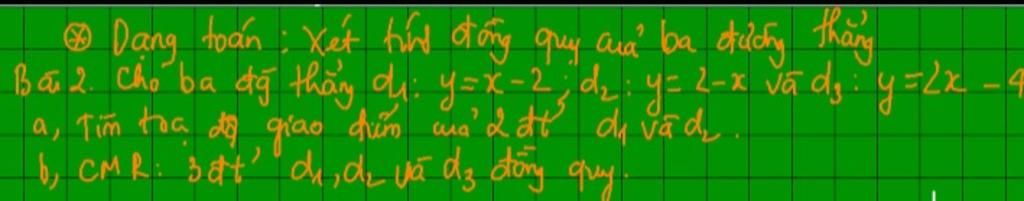 ⊛ Dạng toán: Xét tính đồng quy của ba đường thẳng
Bài 2. Cho ba đg thẳng d₁: y=x-2; d₂: y=2-x và d₃: y=2x-4
a, Tìm toạ độ giao điểm của 2 đt' d₁ và d₂.
b, CMR: 3 đt' d₁, d₂ và d₃ đồng quy.